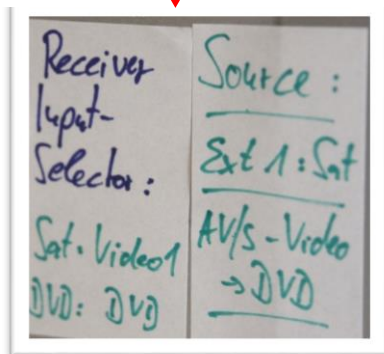 Receiver
Input-
Selector:
Sat: Video1
DVD: DVD
Source:
Ext 1: Sat
AV/S-Video
→ DVD